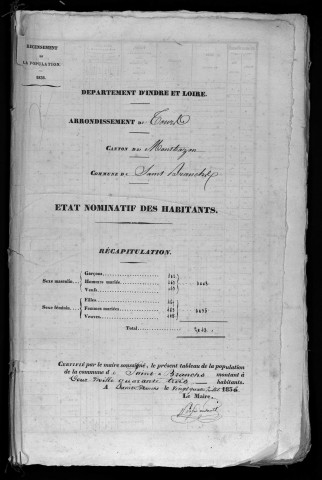 RECENSEMENT
DE
LA POPULATION
DEPARTEMENT D'INDRE ET LOIRE.
ARRONDISSEMENT DE Tours
CANTON DE Montbazon
COMMUNE DE Saint Branchs
ETAT NOMINATIF DES HABITANTS.
RÉCAPITULATION.
Sexe masculin.
Garçons
Hommes mariés
Veufs
Sexe féminin.
Filles
Femmes mariées
Veuves
Total
CERTIFIÉ par le maire soussigné, le présent tableau de la population
de la commune de Saint-Branchs montant à
Deux mille quarante trois habitants.
A Saint Branchs le 1836
Le Maire